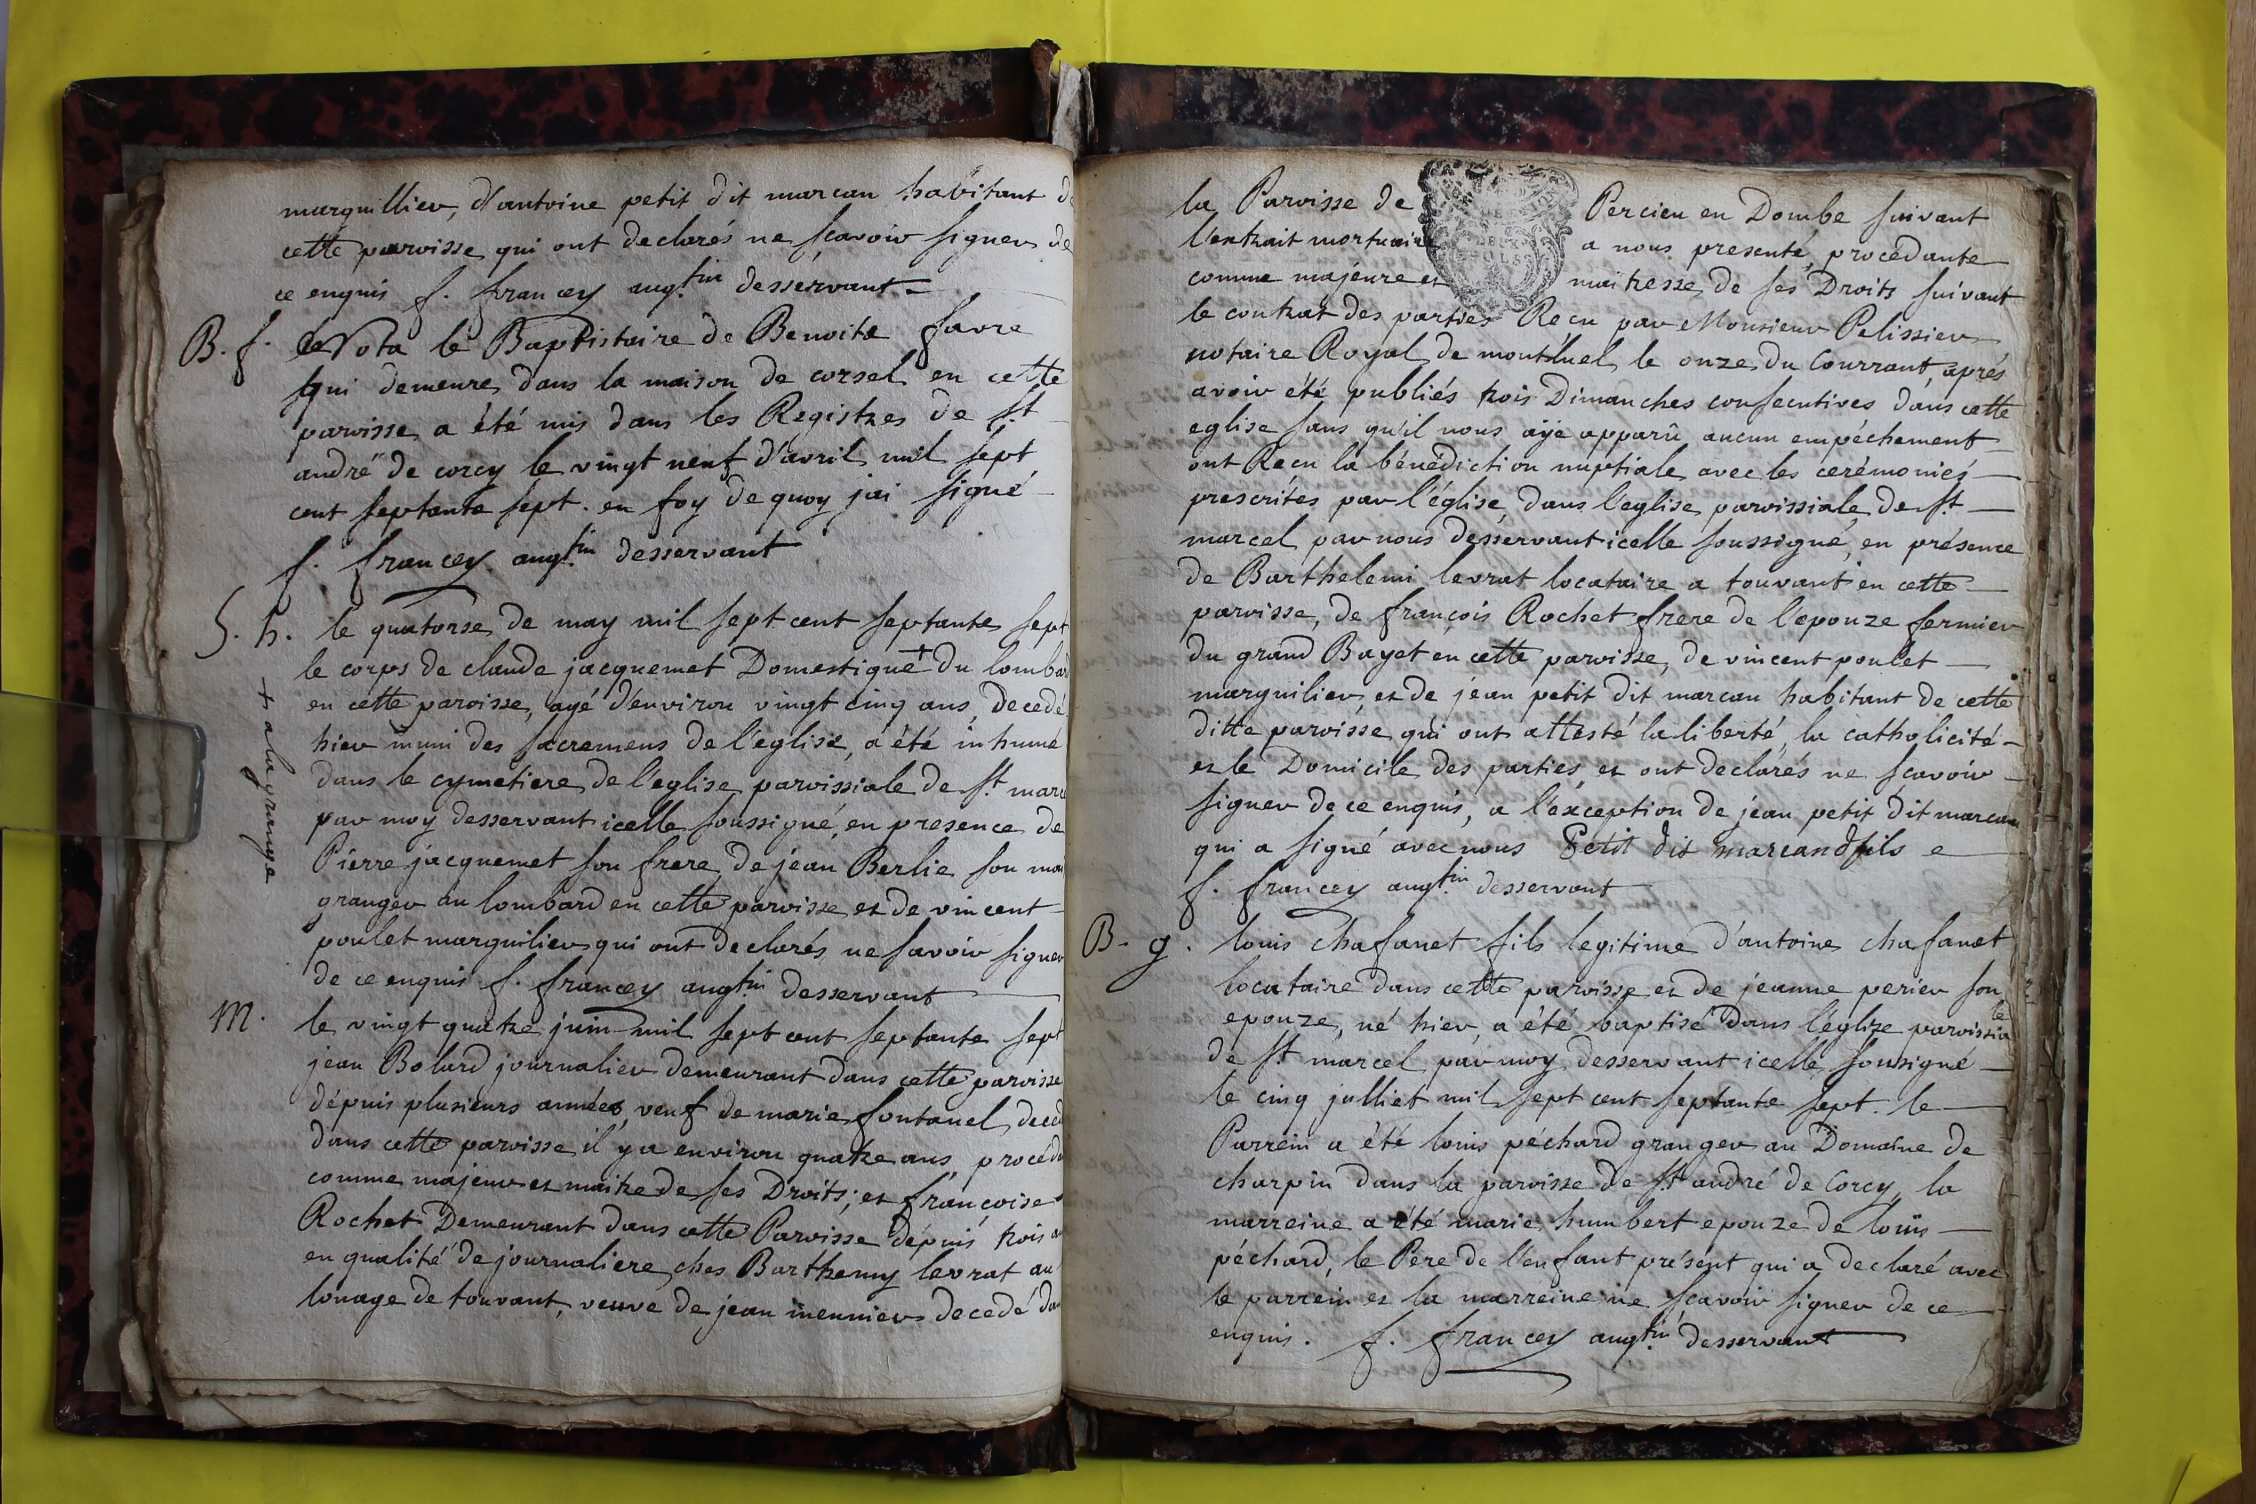 marguillier, d'antoine petit dit marcan habitant de
cette paroisse qui ont declarés ne sçavoir signer de
ce enquis f. francey aug.tin desservant
B. f. Nota le Baptistaire de Benoite favre
qui demeure dans la maison de corsel en cette
paroisse a été mis dans les Registres de St
andré de corcy le vingt neuf d'avril mil sept
cent septante sept. en foy de quoy jai signé
f. francey aug.tin desservant
S. h. le quatorse de may mil sept cent septante sept
le corps de claude jacquemet Domestique + du lombard
+ a la grange
en cette paroisse, agé d'environ vingt cinq ans, decedé
hier muni des sacremens de l'eglise, a été inhumé
dans le cymetiere de l'eglise paroissiale de St marce
par moy desservant icelle soussigné, en presence de
Pierre jacquemet son frere, de jean Berlie son
granger au lombard en cette paroisse et de vincent
poulet marguilier qui ont declarés ne savoir signer
de ce enquis f. francey aug.tin desservant
M. le vingt quatre juin mil sept cent septante sept
jean Bolard journalier demeurant dans cette paroisse
depuis plusieurs années, veuf de marie fontanel, deced
dans cette paroisse il y a environ quatre ans, procéda
comme majeur et maitre de ses Droits; et françoise
Rochet Demeurant dans cette Paroisse dépuis trois
en qualité de journaliere ches Barthemy levrat au
louage de touvant, veuve de jean meunier decedé dan
la Paroisse de Percieu en Dombe suivant
l'extrait mortuaire a nous presenté, procedante
comme majeure et maitresse de ses Droits suivant
le contrat des parties Recu par Monsieur Pelissier
notaire Royal de montluel le onze du Courrant, aprés
avoir été publiés trois Dimanches consecutives dans cette
eglise sans qu'il nous aÿe apparû aucun empéchement
ont Recu la bénédiction nuptiale avec les cerémonies
prescrites par l'église, dans l'eglise paroissiale de St
marcel par nous desservant icelle soussigné, en présence
de Barthelemi levrat locataire a touvant en cette
paroisse, de françois Rochet frere de l'epouze fermier
du grand Bayet en cette paroisse, de vincent poulet
marguilier, et de jean petit dit marcan habitant de cette
ditte paroisse qui ont attesté la liberté, la catholicité
et le Domicile des parties, et ont declarés ne sçavoir
signer de ce enquis, a l'exception de jean petit dit marcan
qui a signé avec nous Petit dit marcand fils
f. francey aug.tin desservant
B. g. louis chafanet fils legitime d'antoine chafanet
locataire dans cette paroisse et de jeanne perier son
epouze, né hier, a été baptisé dans l'églize paroissiale
de St marcel par moy desservant icelle sousigné
le cinq julliet mil sept cent septante sept. le
Parrein a été louis péchard granger au Domaine de
charpin dans la paroisse de St andré de Corcy, la
marreine a été marie humbert epouze de louïs
péchard, le Pere de l'enfant présent qui a declaré avec
le parrein et la marreine ne sçavoir signer de ce
enquis. f. francey aug.tin desservant